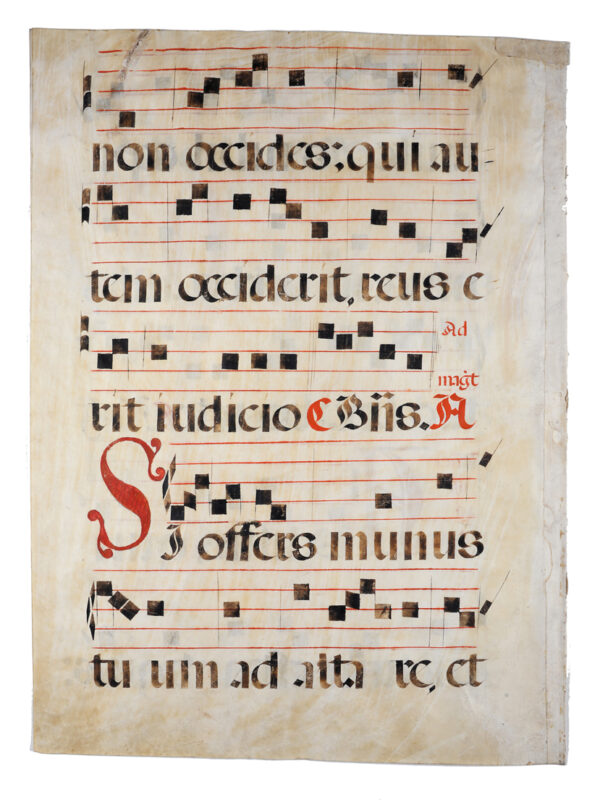 non occides: qui au-
tem occiderit, reus e
Ad
magt
rit iudicio C Bns. A
Si offers munus
tu um ad alta re, et